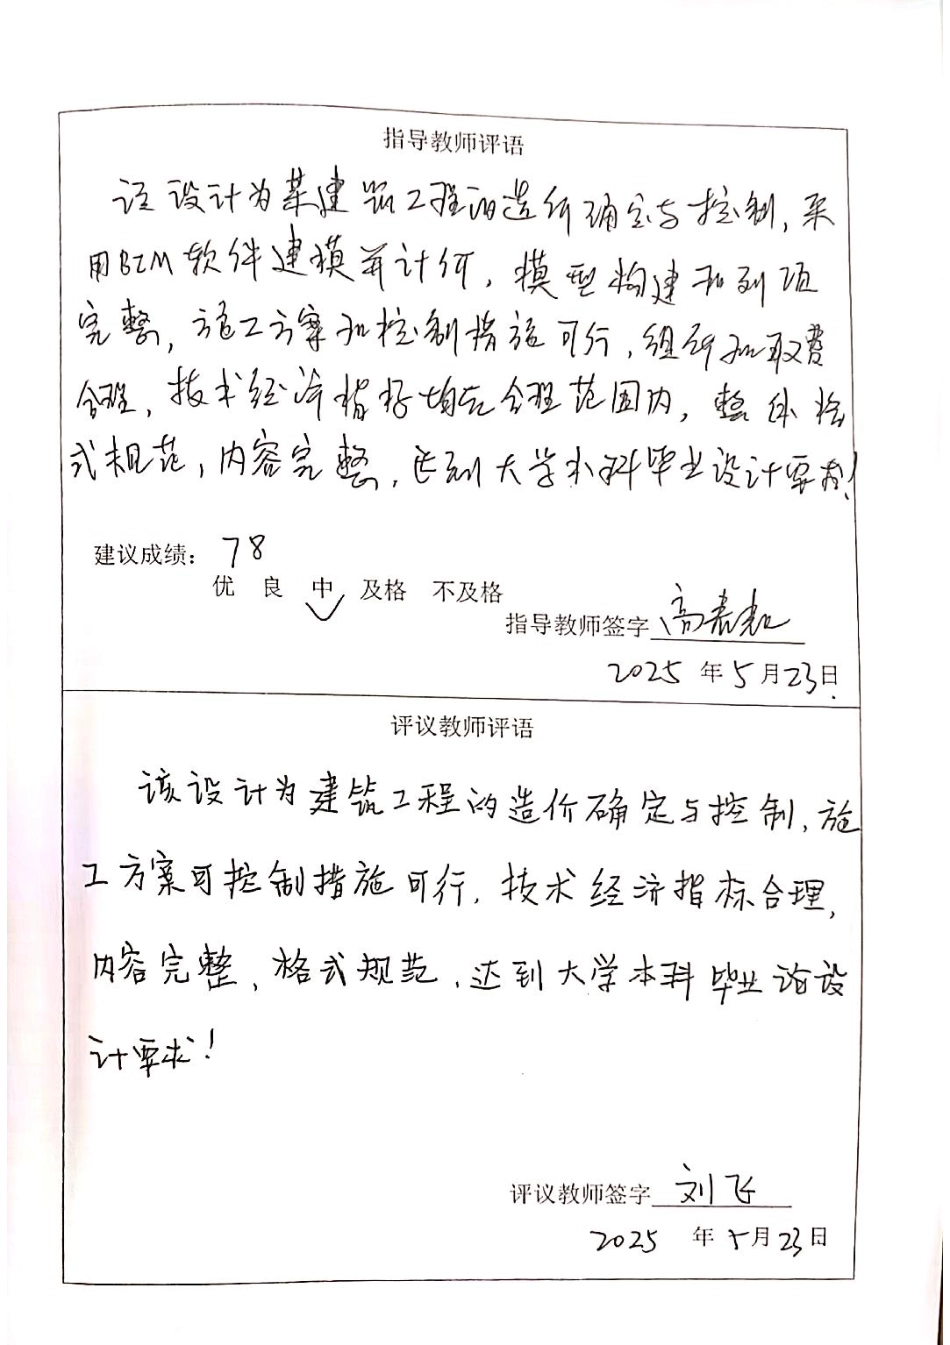 指导教师评语
该设计为某建筑工程的造价确定与控制,采
用BIM软件建模并计价,模型构建和列项
完整,施工方案和控制措施可行,组价和取费
合理,技术经济指标均在合理范围内,整体格
式规范,内容完整,达到大学本科毕业设计要求!
建议成绩: 78
优 良 中 及格 不及格
指导教师签字
2025 年 5 月 23 日
评议教师评语
该设计为建筑工程的造价确定与控制,施
工方案可控制措施可行,技术经济指标合理,
内容完整、格式规范,达到大学本科毕业论设
计要求!
评议教师签字 刘飞
2025 年 5 月 23 日